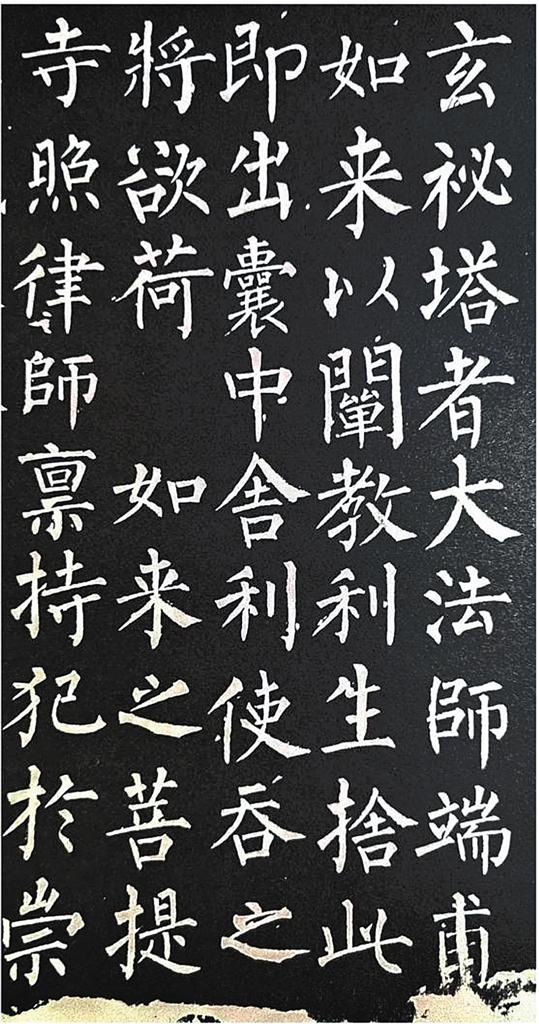 玄祕塔者大法師端甫
如来以闡教利生捨此
即出囊中舎利使吞之
將欲荷如来之菩提
寺照律師禀持犯於崇